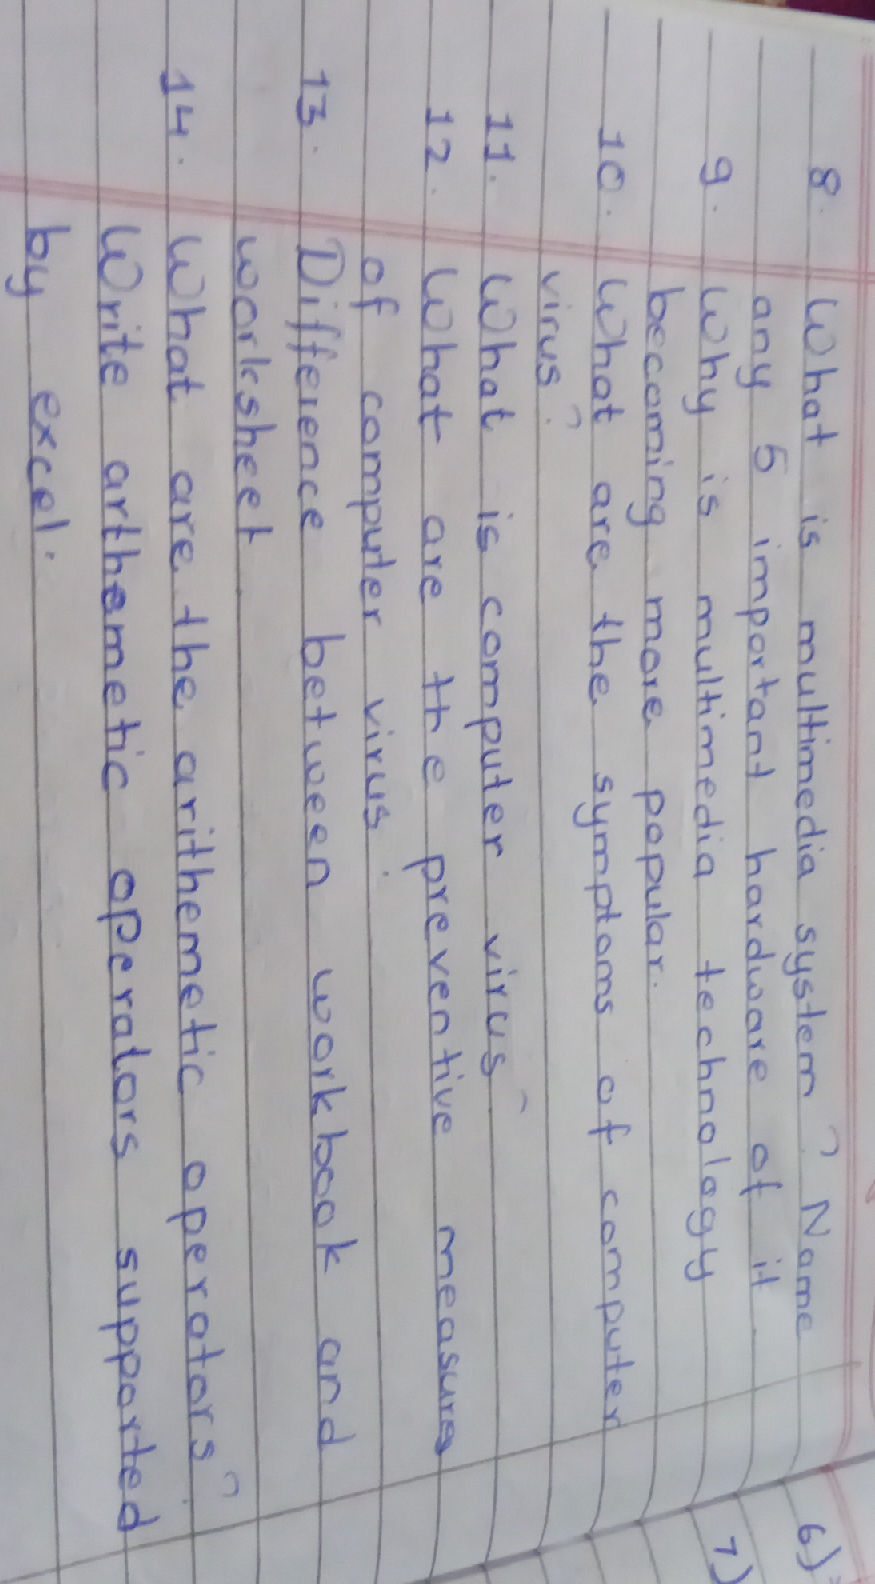 8. What is multimedia system? Name
any 5 important hardware of it.
9. Why is multimedia technology
becoming more popular.
10. What are the symptoms of computer
virus?
11. What is computer virus
12. What are the preventive measures
of computer virus.
13. Difference between workbook and
worksheet
14. What are the arithemetic operators?
Write arthemetic operators supported
by excel.
6)
7)